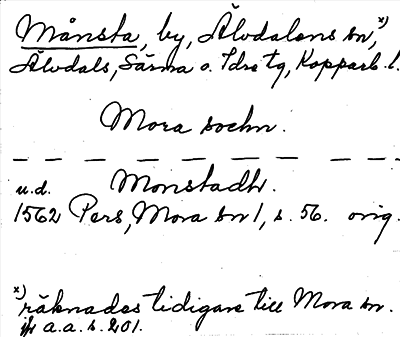 Månsta, by, Älvdalens sn,x)
Älvdals, Särna o. Idre tg, Kopparb. l.
Mora sochn.
u.d. Monstadh.
1562 Pers, Mora sn 1, s. 56. orig.
x) räknades tidigare till Mora sn.
jfr a.a. s. 201.